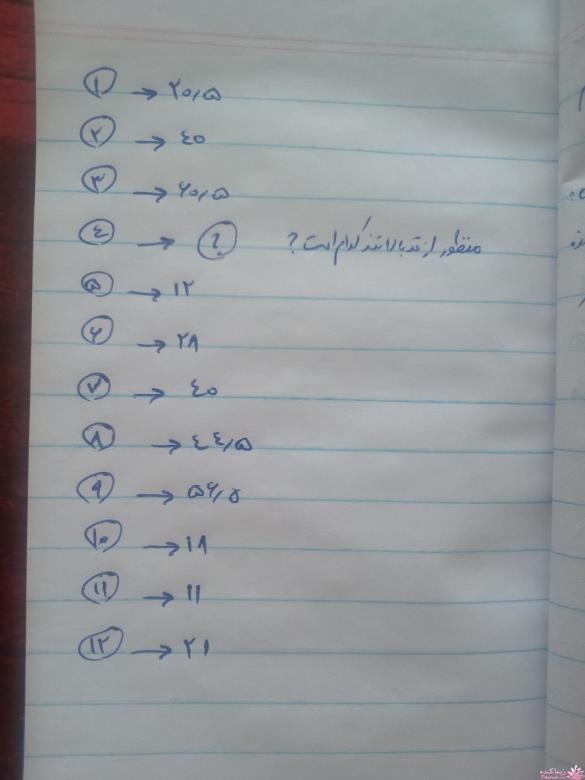 ۱ → ۲۰٫۵
۲ → ٤۰
۳ → ۶۰٫۵
٤ → ؟ منظور از قد بالا تنه کدام است؟
۵ → ۱۲
۶ → ۲۸
۷ → ٤۰
۸ → ٤٤٫۵
۹ → ۵۶٫۵
۱۰ → ۱۸
۱۱ → ۱۱
۱۲ → ۲۱
زیباکده